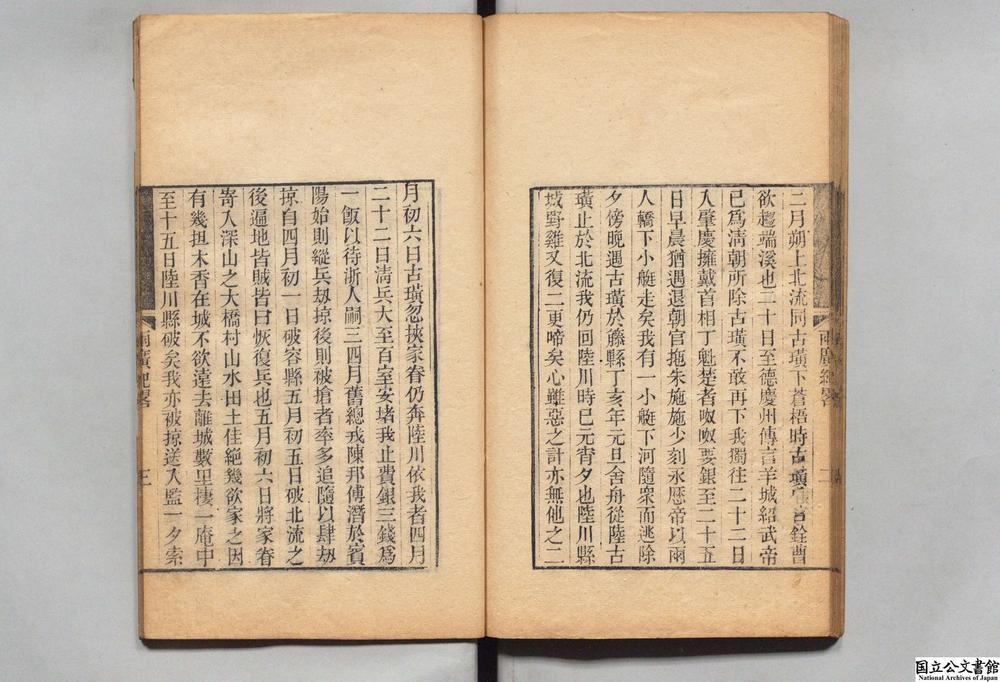 二月朔上北流同古璜下蒼梧時古璜
言銓曹
欲趨端溪也二十日至德慶州傳言羊城紹武帝
已爲淸朝所除古璜不敢再下我獨往二十二日
入肇慶擁戴首相丁魁楚者呶呶要銀至二十五
日早晨猶遇退朝官拖朱施施少刻永曆帝以兩
人轎下小艇走矣我有一小艇下河隨衆而逃除
夕傍晚遇古璜於藤縣丁亥年元旦舍舟從陸古
璜止於北流我仍回陸川時已元宵夕也陸川縣
城野雞又復二更啼矣心雖惡之計亦無他之二
兩廣紀畧
二
月初六日古璜忽挾家眷仍奔陸川依我者四月
二十二日淸兵大至百室安堵我止費銀三錢爲
一飯以待浙人嗣三四月舊總戎陳邦傅潛於賓
陽始則縱兵刼掠後則被搶者率多追隨以肆刼
掠自四月初一日破容縣五月初五日破北流之
後逼地皆賊皆曰恢復兵也五月初六日將家眷
寄入深山之大橋村山水田土佳絕幾欲家之因
有幾担木香在城不欲遠去離城數里棲一庵中
至十五日陸川縣破矣我亦被掠送入監一夕索
兩廣紀畧
三
国立公文書館
National Archives of Japan